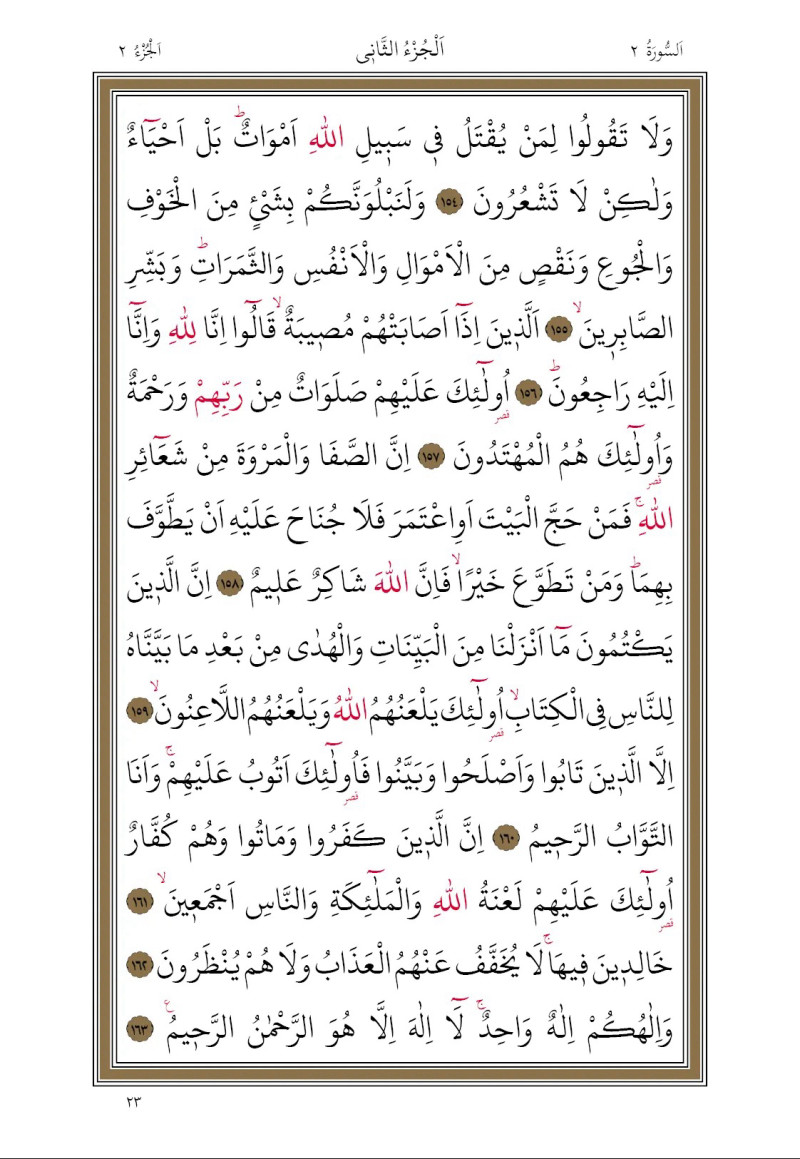 اَلسُّورَةُ ٢ اَلْجُزْءُ الثَّانٖى اَلْجُزْءُ ٢
وَلَا تَقُولُوا لِمَنْ يُقْتَلُ فٖى سَبٖيلِ اللّٰهِ اَمْوَاتٌؕ بَلْ اَحْيَٓاءٌ
وَلٰكِنْ لَا تَشْعُرُونَ ﴿١٥٤﴾ وَلَنَبْلُوَنَّكُمْ بِشَىْءٍ مِنَ الْخَوْفِ
وَالْجُوعِ وَنَقْصٍ مِنَ الْاَمْوَالِ وَالْاَنْفُسِ وَالثَّمَرَاتِؕ وَبَشِّرِ
الصَّابِرٖينَۙ ﴿١٥٥﴾ اَلَّذٖينَ اِذَٓا اَصَابَتْهُمْ مُصٖيبَةٌۙ قَالُٓوا اِنَّا لِلّٰهِ وَاِنَّٓا
اِلَيْهِ رَاجِعُونَؕ ﴿١٥٦﴾ اُولٰٓئِكَ قصر عَلَيْهِمْ صَلَوَاتٌ مِنْ رَبِّهِمْ وَرَحْمَةٌ
وَاُولٰٓئِكَ قصر هُمُ الْمُهْتَدُونَ ﴿١٥٧﴾ اِنَّ الصَّفَا وَالْمَرْوَةَ مِنْ شَعَٓائِرِ
اللّٰهِۚ فَمَنْ حَجَّ الْبَيْتَ اَوِاعْتَمَرَ فَلَا جُنَاحَ عَلَيْهِ اَنْ يَطَّوَّفَ
بِهِمَاؕ وَمَنْ تَطَوَّعَ خَيْرًاۙ فَاِنَّ اللّٰهَ شَاكِرٌ عَلٖيمٌ ﴿١٥٨﴾ اِنَّ الَّذٖينَ
يَكْتُمُونَ مَٓا اَنْزَلْنَا مِنَ الْبَيِّنَاتِ وَالْهُدٰى مِنْ بَعْدِ مَا بَيَّنَّاهُ
لِلنَّاسِ فِى الْكِتَابِۙ اُولٰٓئِكَ قصر يَلْعَنُهُمُ اللّٰهُ وَيَلْعَنُهُمُ اللَّاعِنُونَۙ ﴿١٥٩﴾
اِلَّا الَّذٖينَ تَابُوا وَاَصْلَحُوا وَبَيَّنُوا فَاُولٰٓئِكَ قصر اَتُوبُ عَلَيْهِمْۚ وَاَنَا
التَّوَّابُ الرَّحٖيمُ ﴿١٦٠﴾ اِنَّ الَّذٖينَ كَفَرُوا وَمَاتُوا وَهُمْ كُفَّارٌ
اُولٰٓئِكَ قصر عَلَيْهِمْ لَعْنَةُ اللّٰهِ وَالْمَلٰٓئِكَةِ وَالنَّاسِ اَجْمَعٖينَۙ ﴿١٦١﴾
خَالِدٖينَ فٖيهَاۚ لَا يُخَفَّفُ عَنْهُمُ الْعَذَابُ وَلَا هُمْ يُنْظَرُونَ ﴿١٦٢﴾
وَاِلٰهُكُمْ اِلٰهٌ وَاحِدٌۚ لَٓا اِلٰهَ اِلَّا هُوَ الرَّحْمٰنُ الرَّحٖيمُ ع ﴿١٦٣﴾
٢٣